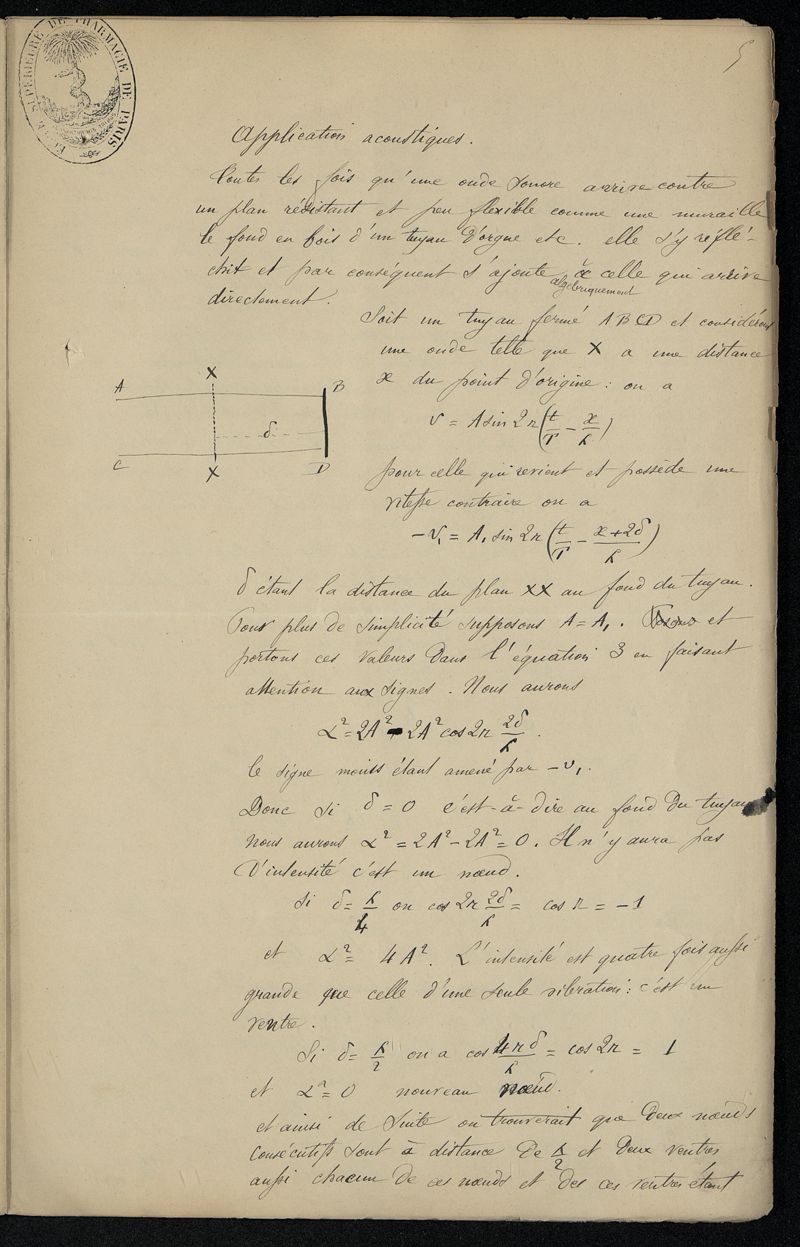 5
ÉCOLE SUPÉRIEURE DE PHARMACIE DE PARIS
Application acoustiques.
Toutes les fois qu'une onde sonore arrive contre
un plan résistant et peu flexible comme une muraille
le fond en bois d'un tuyau d'orgue etc. elle s'y réflé-
chit et par conséquent s'ajoute algébriquement à celle qui arrive
directement.
Soit un tuyau fermé ABCD et considérons
une onde telle que X a une distance
x du point d'origine : on a
v = A sin 2π (t/T - x/λ)
A X B
δ
C X D
pour celle qui revient et possède une
vitesse contraire on a
-v₁ = A₁ sin 2π (t/T - x+2δ/λ)
δ étant la distance du plan XX au fond du tuyau.
Pour plus de simplicité supposons A = A₁. et
portons ces valeurs dans l'équation 3 en faisant
attention aux signes. Nous aurons
α² = 2A² - 2A² cos 2π 2δ/λ.
le signe moins étant amené par -v₁.
Donc si δ = 0 c'est-à-dire au fond du tuyau
nous aurons α² = 2A² - 2A² = 0. Il n'y aura pas
d'intensité c'est un nœud.
Si δ = λ/4 on cos 2π 2δ/λ = cos π = -1
et α² = 4A². L'intensité est quatre fois aussi
grande que celle d'une seule vibration : c'est un
ventre.
Si δ = λ/2 on a cos 4πδ/λ = cos 2π = 1
et α² = 0 nouveau nœud.
et ainsi de suite on trouverait que deux nœuds
consécutifs sont à distance de λ/2 et deux ventres
aussi chacun de ces nœuds et des ces ventres étant